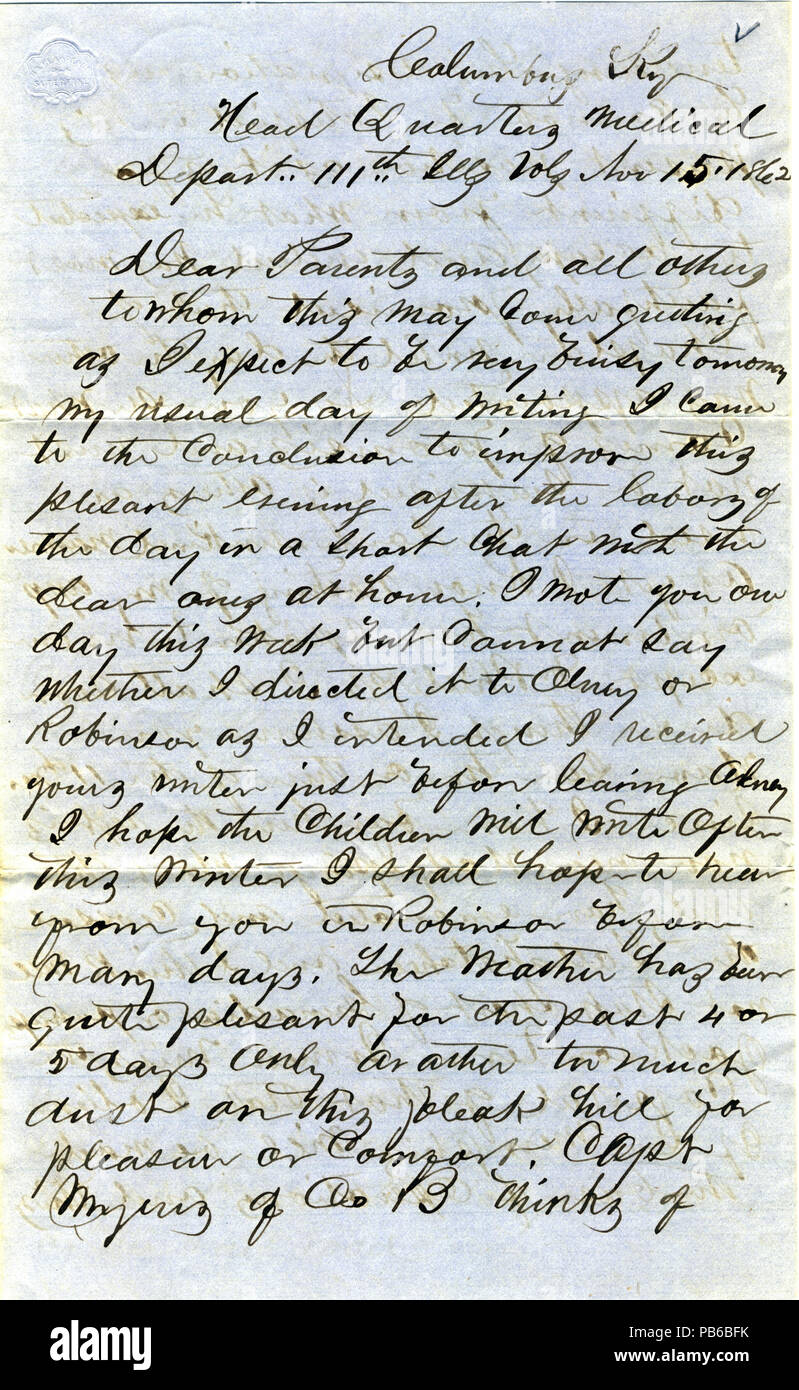 Columbus Ky
Head Quarters Medical
Depart.. 111th Ills Vols Nov 15. 1862
Dear Parents and all others
to whom this may Come greeting
as I expect to be very buisy tomorrow
my usual day of writing I Came
to the Conclusion to improve this
plesant evening after the labors of
the day in a short Chat with the
dear ones at home. I wrote you one
day this week but Cannot say
whether I directed it to Olney or
Robinson as I intended I received
yours writen just before leaving Olney
I hope the Children will write Often
this Winter I shall hope to hear
from you in Robinson before
many days. The Weather has been
quite plesant for the past 4 or
5 days Only a rather to much
dust on this bleak hill for
pleasure or Comfort. Capt
Myers of Co B thinks of
alamy
alamy
alamy
alamy
Image ID: PB6BFK
www.alamy.com